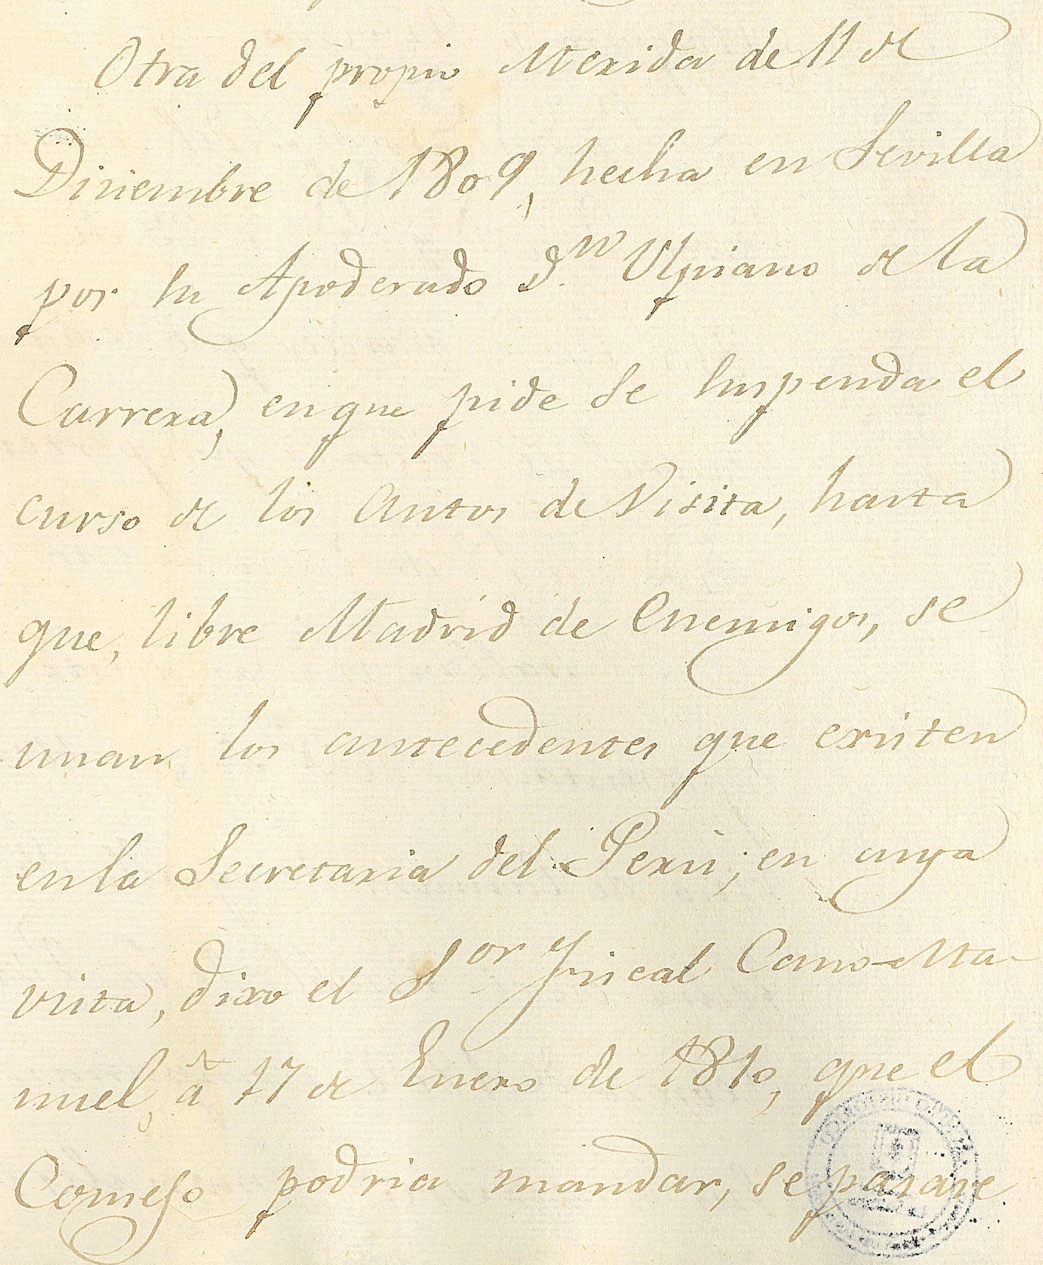 Otra del propio Merida de 11 de
Diciembre de 1809, hecha en Sevilla
por su Apoderado Dn. Ulpiano de la
Carrera, en que pide se suspenda el
curso de los autos de Visita, hasta
que, libre Madrid de Enemigos, se
unan los antecedentes que existen
en la Secretaria del Perú; en cuya
vista, dixo el Sor Fiscal Cano-Ma-
nuel, á 17 de Enero de 1810, que el
Consejo podria mandar, se pasase